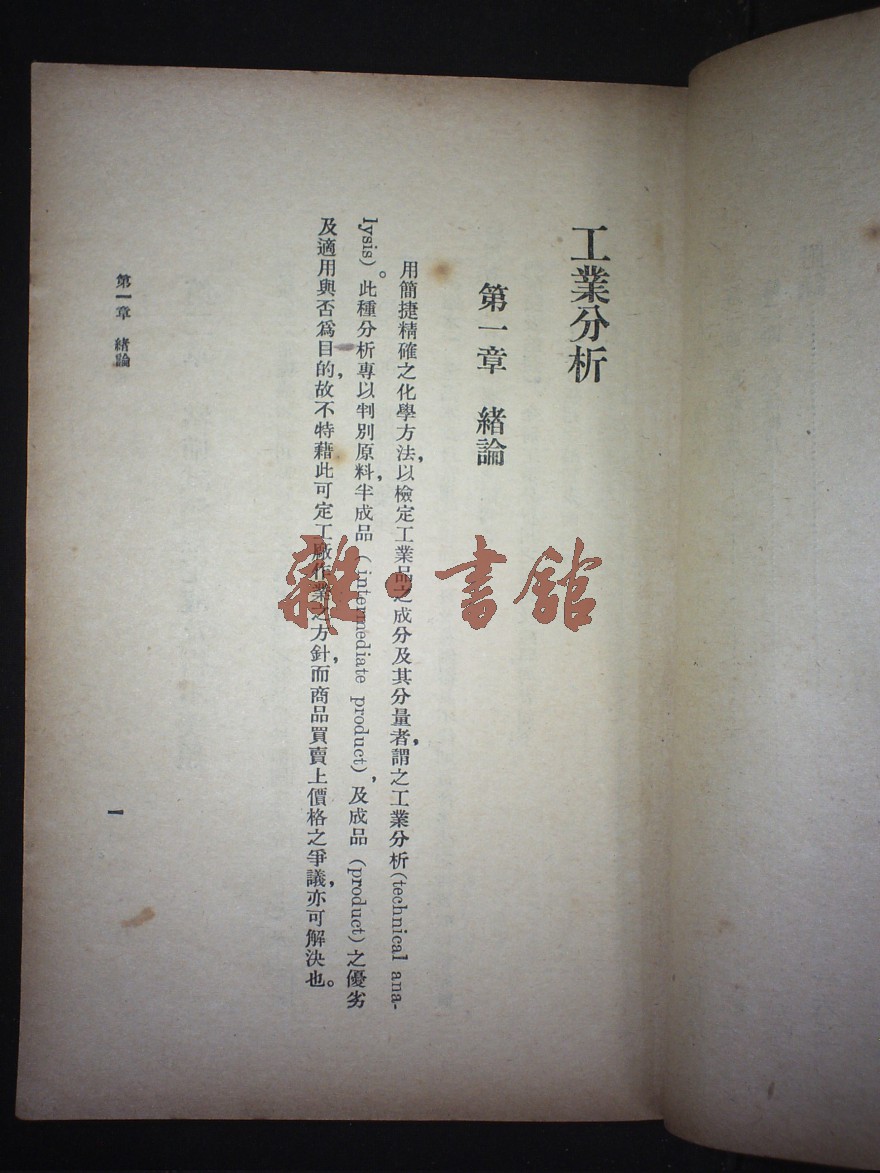 工業分析
第一章　緒論
用簡捷精確之化學方法，以檢定工業品之成分及其分量者，謂之工業分析(technical ana-
lysis)。此種分析專以判別原料，半成品（intermediate product），及成品（product）之優劣
及適用與否爲目的，故不特藉此可定工廠作業之方針，而商品買賣上價格之爭議，亦可解決也。
第一章　緒論
一
雜·書館